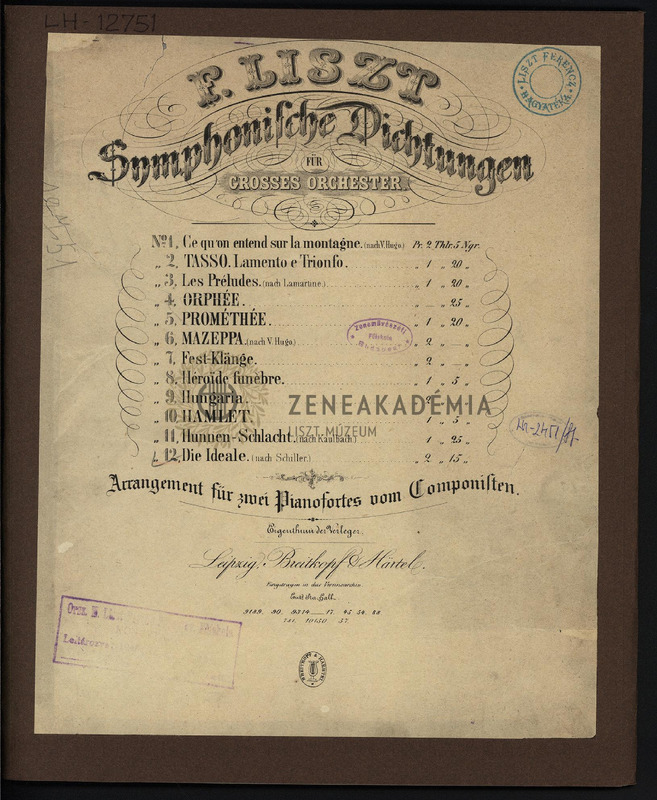 LH-12751
F. LISZT
LISZT FERENCZ HAGYATÉKA
Symphonische Dichtungen
FÜR
GROSSES ORCHESTER.
No. 1, Ce qu'on entend sur la montagne. (nach V. Hugo.) Pr. 2 Thlr. 5 Ngr.
„ 2, TASSO. Lamento e Trionfo. „ 1 „ 20 „
„ 3, Les Préludes. (nach Lamartine.) „ 1 „ 20 „
„ 4, ORPHÉE. „ — „ 25 „
„ 5, PROMÉTHÉE. „ 1 „ 20 „
„ 6, MAZEPPA. (nach V. Hugo.) „ 2 „ — „
Zeneművészeti Főiskola Budapest
„ 7, Fest-Klänge. „ 2 „ — „
„ 8, Héroïde funebre. „ 1 „ 5 „
„ 9, Hungaria. „ 2
ZENEAKADÉMIA
„ 10, HAMLET. „ 1 „ 5 „
LISZT MÚZEUM
„ 11, Hunnen-Schlacht. (nach Kaulbach.) „ 1 „ 25 „
„ 12, Die Ideale. (nach Schiller.) „ 2 „ 15 „
Arrangement für zwei Pianofortes vom Componisten.
Eigenthum der Verleger.
Leipzig, Breitkopf & Härtel.
Eingetragen in das Vereinsarchiv.
Ent. Sta. Hall.
9189. 90. 9374 — 17. 45. 54. 88.
10150. 57.
BREITKOPF & HAERTEL